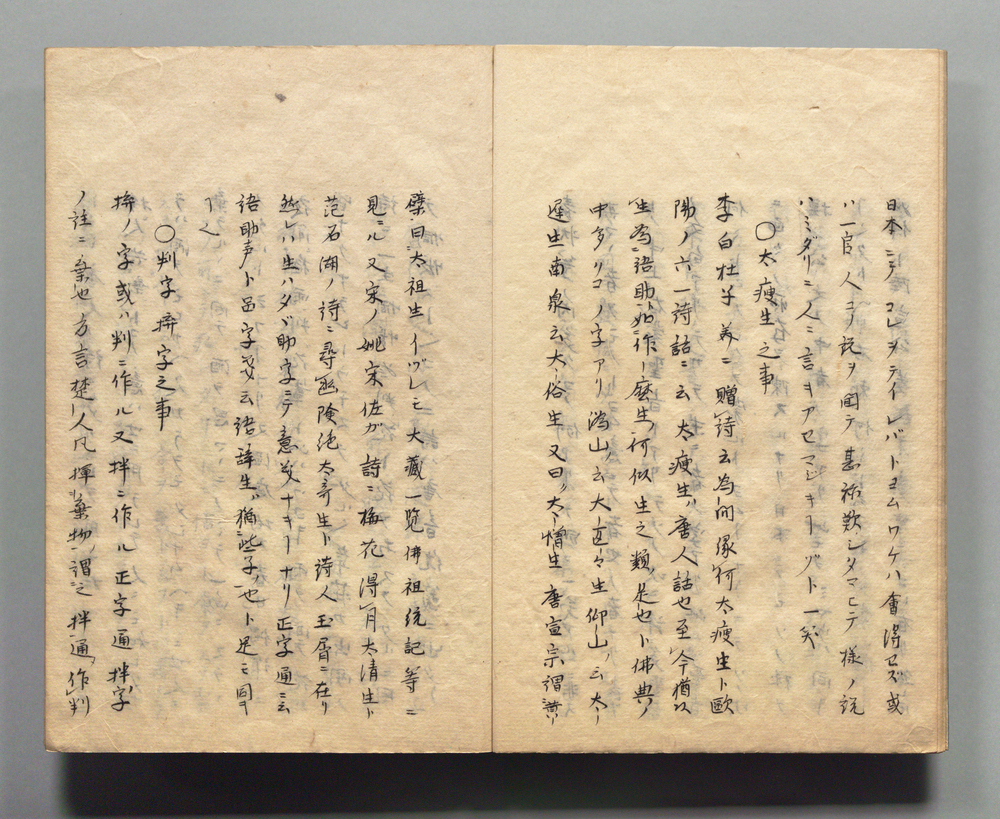 日本ニテコレヲテイレバトヨムワケハ會得セズ或
ハ官人ヨリ説ヲ聞テ甚称歎シタマヒテ様ノ説
ハミダリニ人ニ言キアセマジキ一ヅト一笑
〇太瘦生之事
李白杜子美ニ贈詩云為問縁何太瘦生ト歐
陽ノ六一詩話ニ云太瘦生唐人語也至今猶以
生為語助如作麼生何似生之類是也ト佛典ノ
中多クコノ字アリ潙山云大遠々生仰山云太
遲生南泉云太俗生又曰太懆生唐宣宗謂黄
檗曰太祖生イヅレモ大藏一覧佛祖統記等ニ
見ユル又宋ノ姚宋佐ガ詩ニ梅花得月太清生ト
范石湖ノ詩ニ尋幽険絶太奇生ト詩人玉屑ニ在リ
然レハ生ハタゞ助字ニテ意義ナキ一ナリ正字通ニ云
語助声ト呂字義云語辞生猶些子也ト是ニ同
丁之
〇判字拚字之事
拚ノ字或ハ判ニ作ル又拌ニ作ル正字通拌字
ノ註ニ棄也方言楚人凡揮棄物謂之拌通作判